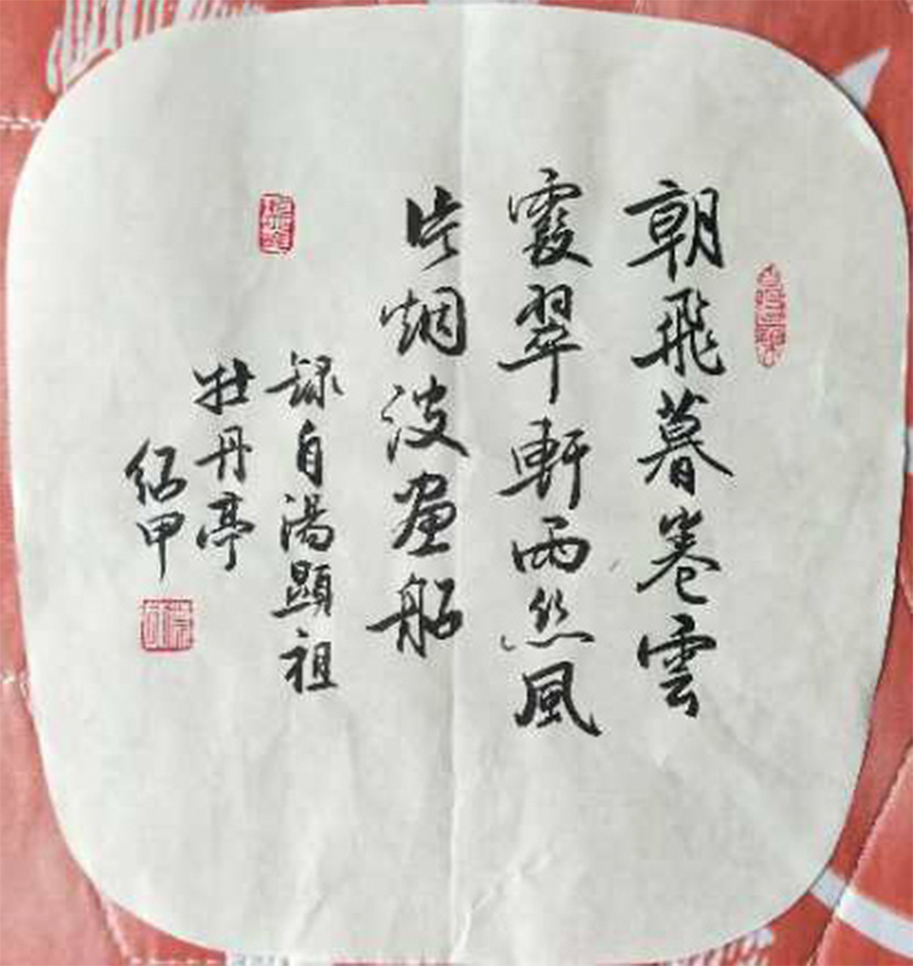 朝飛暮卷雲
霞翠軒雨絲風
片烟波畫船
録自湯顯祖
牡丹亭
紹甲